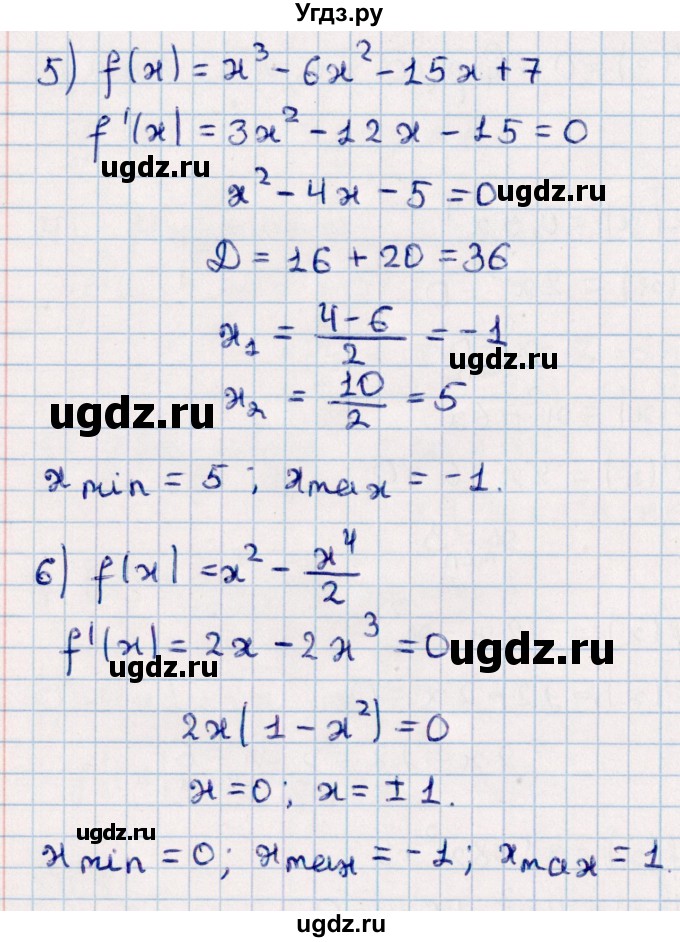 Угдз.ру
5) f(x) = x³ - 6x² - 15x + 7
f'(x) = 3x² - 12x - 15 = 0
ugdz.ru
x² - 4x - 5 = 0 ugdz.ru
Д = 16 + 20 = 36
x₁ = (4 - 6)/2 = -1
ugdz.ru
ugdz.ru
x₂ = 10/2 = 5
x min = 5; x max = -1.
6) f(x) = x² - x⁴/2
f'(x) = 2x - 2x³ = 0 ugdz.ru
ugdz.ru
2x(1 - x²) = 0
x = 0; x = ± 1.
ugdz.ru
x min = 0; x max = -1; x max = 1.
ugdz.ru